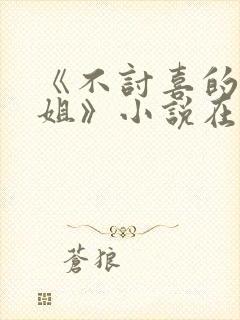 《不討喜的
姐》小說在
蒼狼